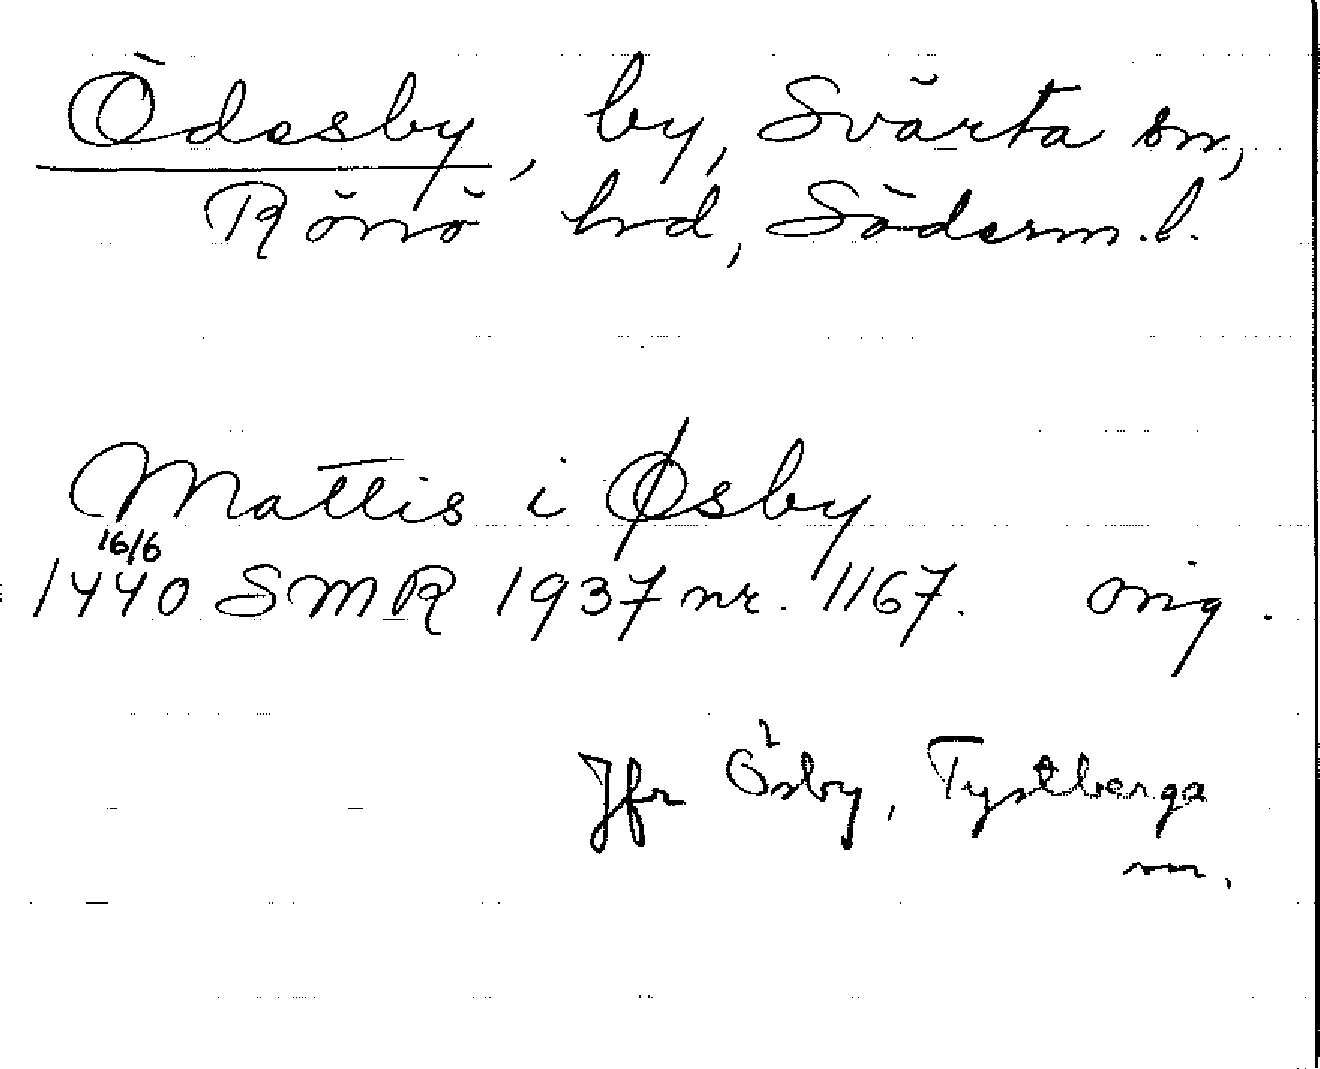 Ödesby, by, Svärta sn,
Rönö hd, Söderm.l.
Mattis i Øsby
16/6
1440 SMR 1937 nr. 1167. orig.
Jfr Ösby, Tystberga
sn.